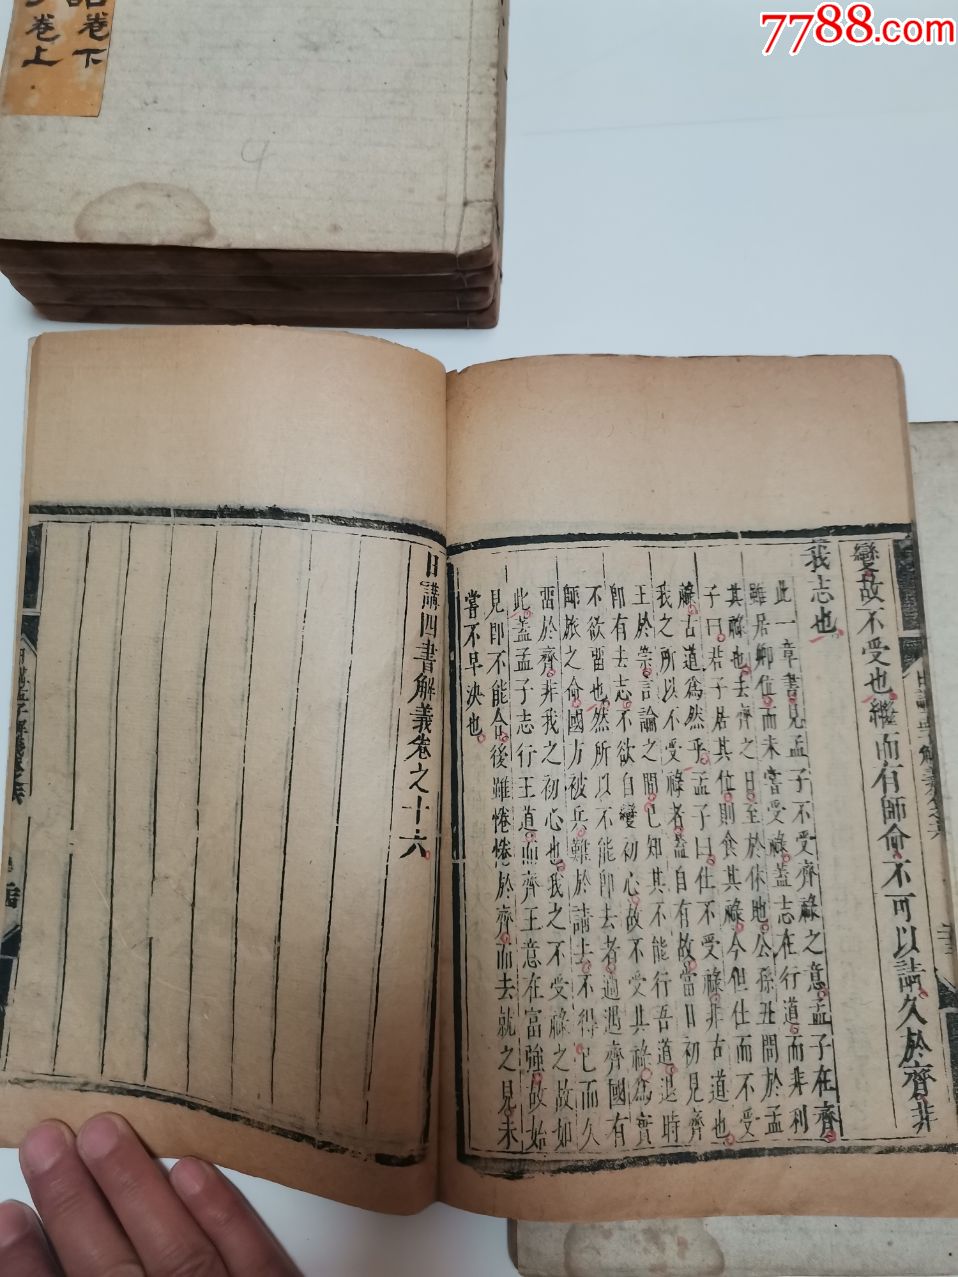 7788.com
卷下
卷上
4
變故不受也繼而有師命不可以請久於齊非
我志也
此一章書見孟子不受齊祿之意孟子在齊
雖居卿位而未嘗受祿蓋志在行道而非利
其祿也去齊之日至於休地公孫丑問於孟
子曰君子居其位則食其祿今但仕而不受
祿古道為然乎孟子曰仕不受祿非古道也
我之所以不受祿者蓋自有故當日初見齊
王於崇言論之間已知其不能行吾道退時
即有去志不欲自變初心故不受其祿為實
不欲留也然所以不能即去者適遇齊國有
師旅之命國方被兵難於請去不得已而久
留於齊非我之初心也我之不受祿之故如
此蓋孟子志行王道而齊王意在富強故始
見即不能合後雖惓惓於齊而去就之見未
嘗不早決也
日講四書解義卷之十六